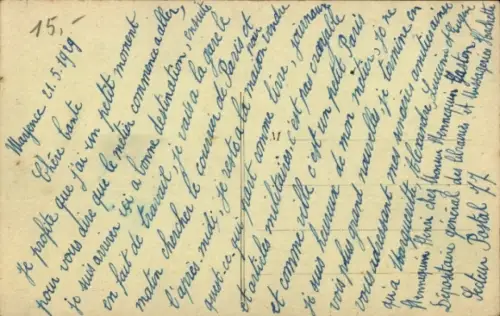 15,-
Mayence 21.5.1919
Chère tante
Je profite que j'ai un petit moment
pour vous dire que le métier commence a aller,
je suis arriver ici a bonne destination, ensuite
en fait de travail, je vais a la gare le
matin chercher le courrier de Paris et
l'après-midi, je reste a la maison vendre
qui part comme livre, journaux
et articles militaires c'est pas croyable
et comme ville c'est un petit Paris
je suis heureux de mon métier, je ne
vois plus grand nouvelles je termine en
vous adressant mes sincères amitiés ainsi
qu'a
Monnequin René chez Monsieur Monnequin Gaston
Dépositaire général des
Secteur Postal 77